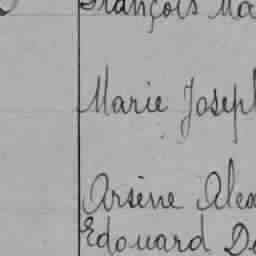 François Ma
Marie Joseph
Arsène Alex
Edouard De